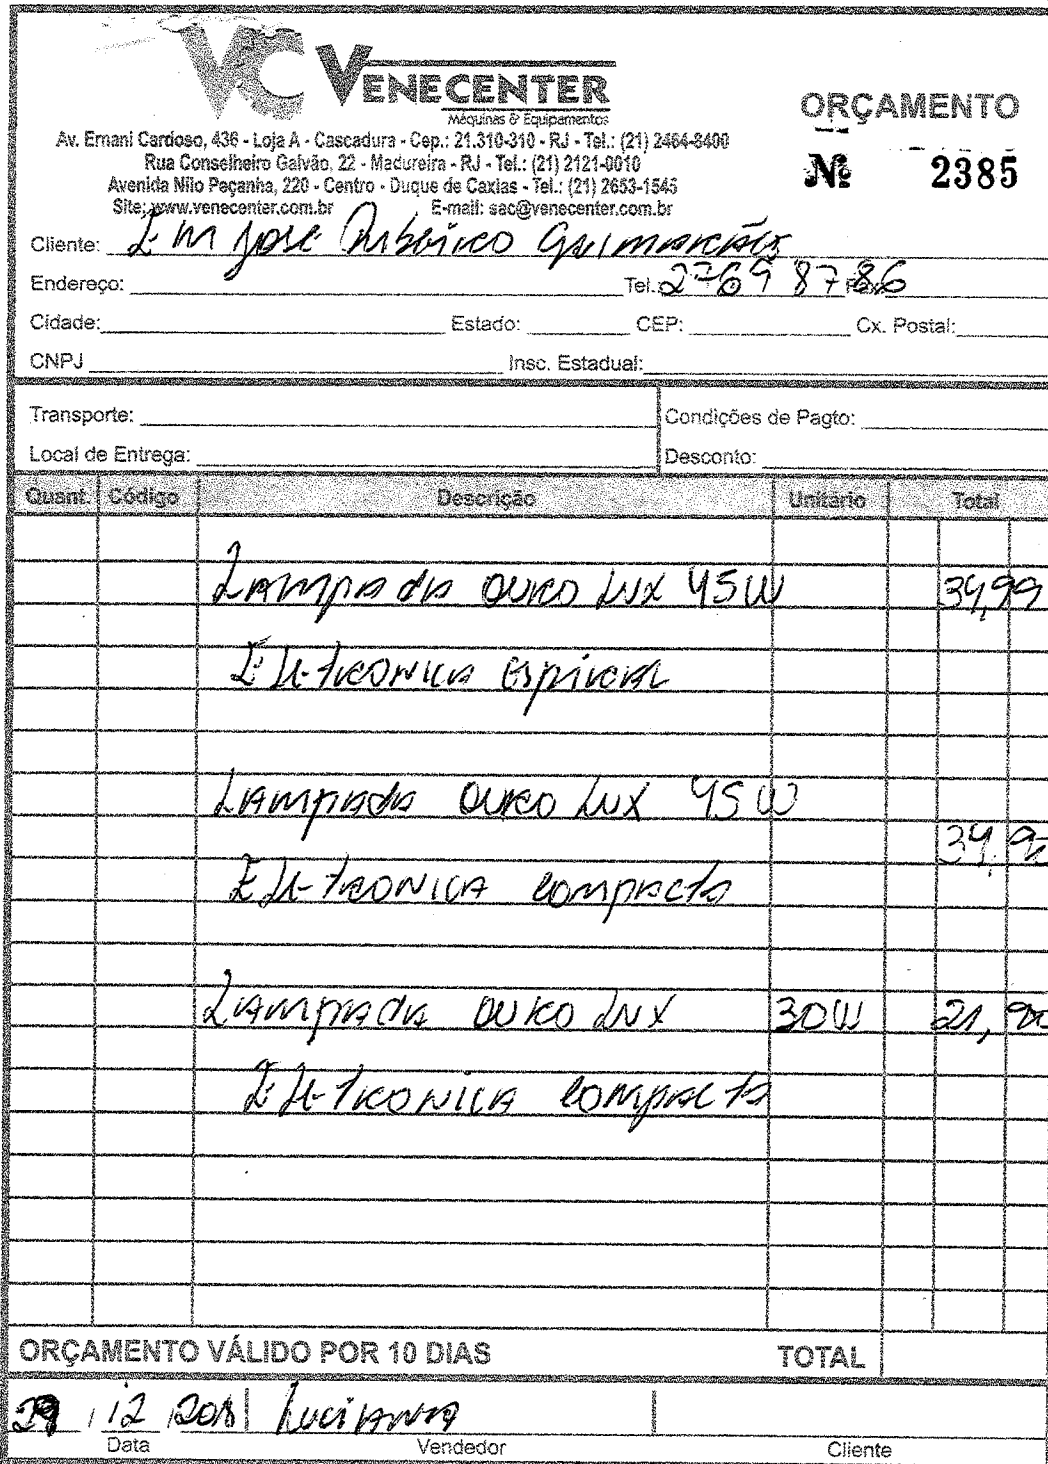 VC VENECENTER
Máquinas & Equipamentos
ORÇAMENTO
Av. Ernani Cardoso, 436 - Loja A - Cascadura - Cep.: 21.310-310 - RJ - Tel.: (21) 2464-8400
Rua Conselheiro Galvão, 22 - Madureira - RJ - Tel.: (21) 2121-0010
Nº 2385
Avenida Nilo Peçanha, 220 - Centro - Duque de Caxias - Tel.: (21) 2653-1545
Site: www.venecenter.com.br E-mail: sac@venecenter.com.br
Cliente: EM José Guimarães
Endereço: Tel.: 2769 8786
Cidade: Estado: CEP: Cx. Postal:
CNPJ Insc. Estadual:
Transporte: Condições de Pagto:
Local de Entrega: Desconto:
Quant. Código Descrição Unitário Total
Lampada ouro Lux 45W 34,99
Eletronica Espiral
Lampada ouro Lux 45W
34,
Eletronica compacta
Lampada ouro Lux 30W 21,
Eletronica compacta
ORÇAMENTO VÁLIDO POR 10 DIAS TOTAL
12 Lucianna
Data Vendedor Cliente